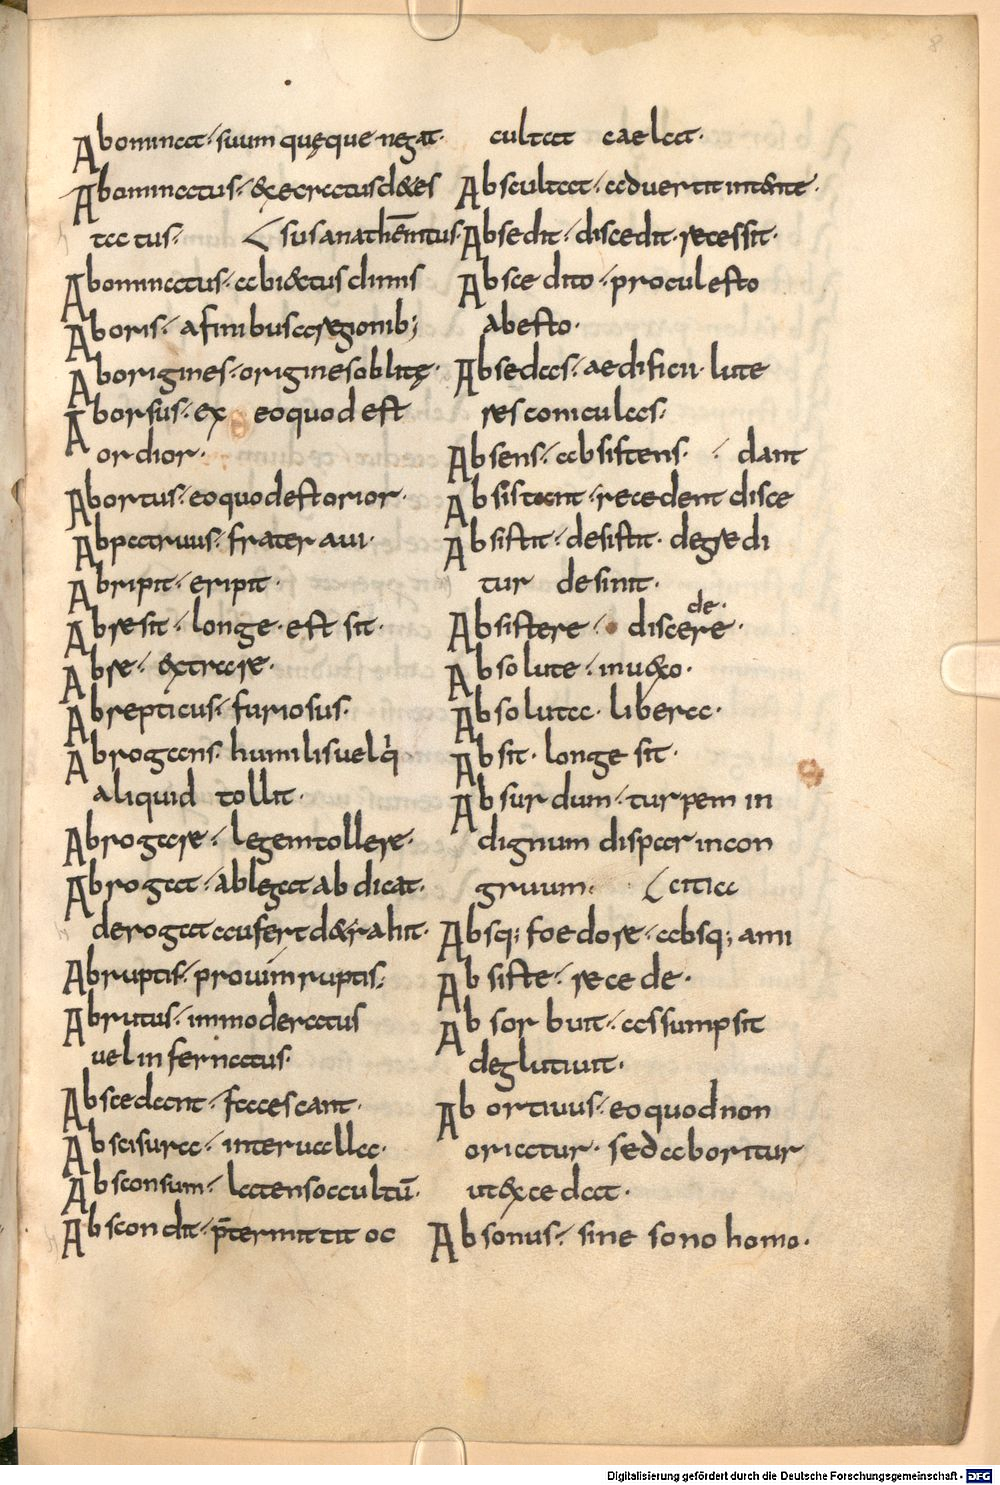 8
Abominat · suum quęque negat ·
Abominatus · &xecratus d&es
tatus · susanathēmtus ·
Abominatus · abi&tus dimis
Aboris · a finibus a regonib;
Aborigines · origines oblitę ·
Aborsus · ex eo quod est
ordior ·
Abortus · eo quod est orior ·
Abpatruus · frater aui ·
Abripit · eripit ·
Abresit · longe · est sit ·
Abre · &xtrare ·
Abrepticus · furiosus ·
Abrogans · humilis uel q
aliquid tollit ·
Abrogare · legem tollere ·
Abrogat · ablegat abdicat ·
derogat aufert d&rahit ·
Abruptis · prouim ruptis ;
Abrutus · immoderatus
uel infernatus ·
Abscedant · facescant ·
Abscisura · interualla ·
Absconsum · latens occultū ·
Abscondit · p̄termittit oc
cultat caelat ·
Abscultat · aduertit int&nte ·
Absedit · discedit · recessit ·
Abscedito · procul esto
abesto ·
Absedas · aedificii · late
res coniculas ·
Absens · absistens · dant
Absistant · recedent disce
Absistit · desistit · degredi
tur desinit ·
de ·
Absistere · discere ·
Absolute · inu&xo ·
Absoluta · libera ·
Absit · longe sit ·
Absurdum · turpem in
dignum dispar incon
gruum · citia
Absq; foedore · absq; ami
Absiste · recede ·
Absorbuit · assumpsit
deglutiuit ·
Abortiuus · eo quod non
oriatur · sed aboritur
ut &xcedat ·
Absonus · sine sono homo ·
Digitalisierung gefördert durch die Deutsche Forschungsgemeinschaft - DFG